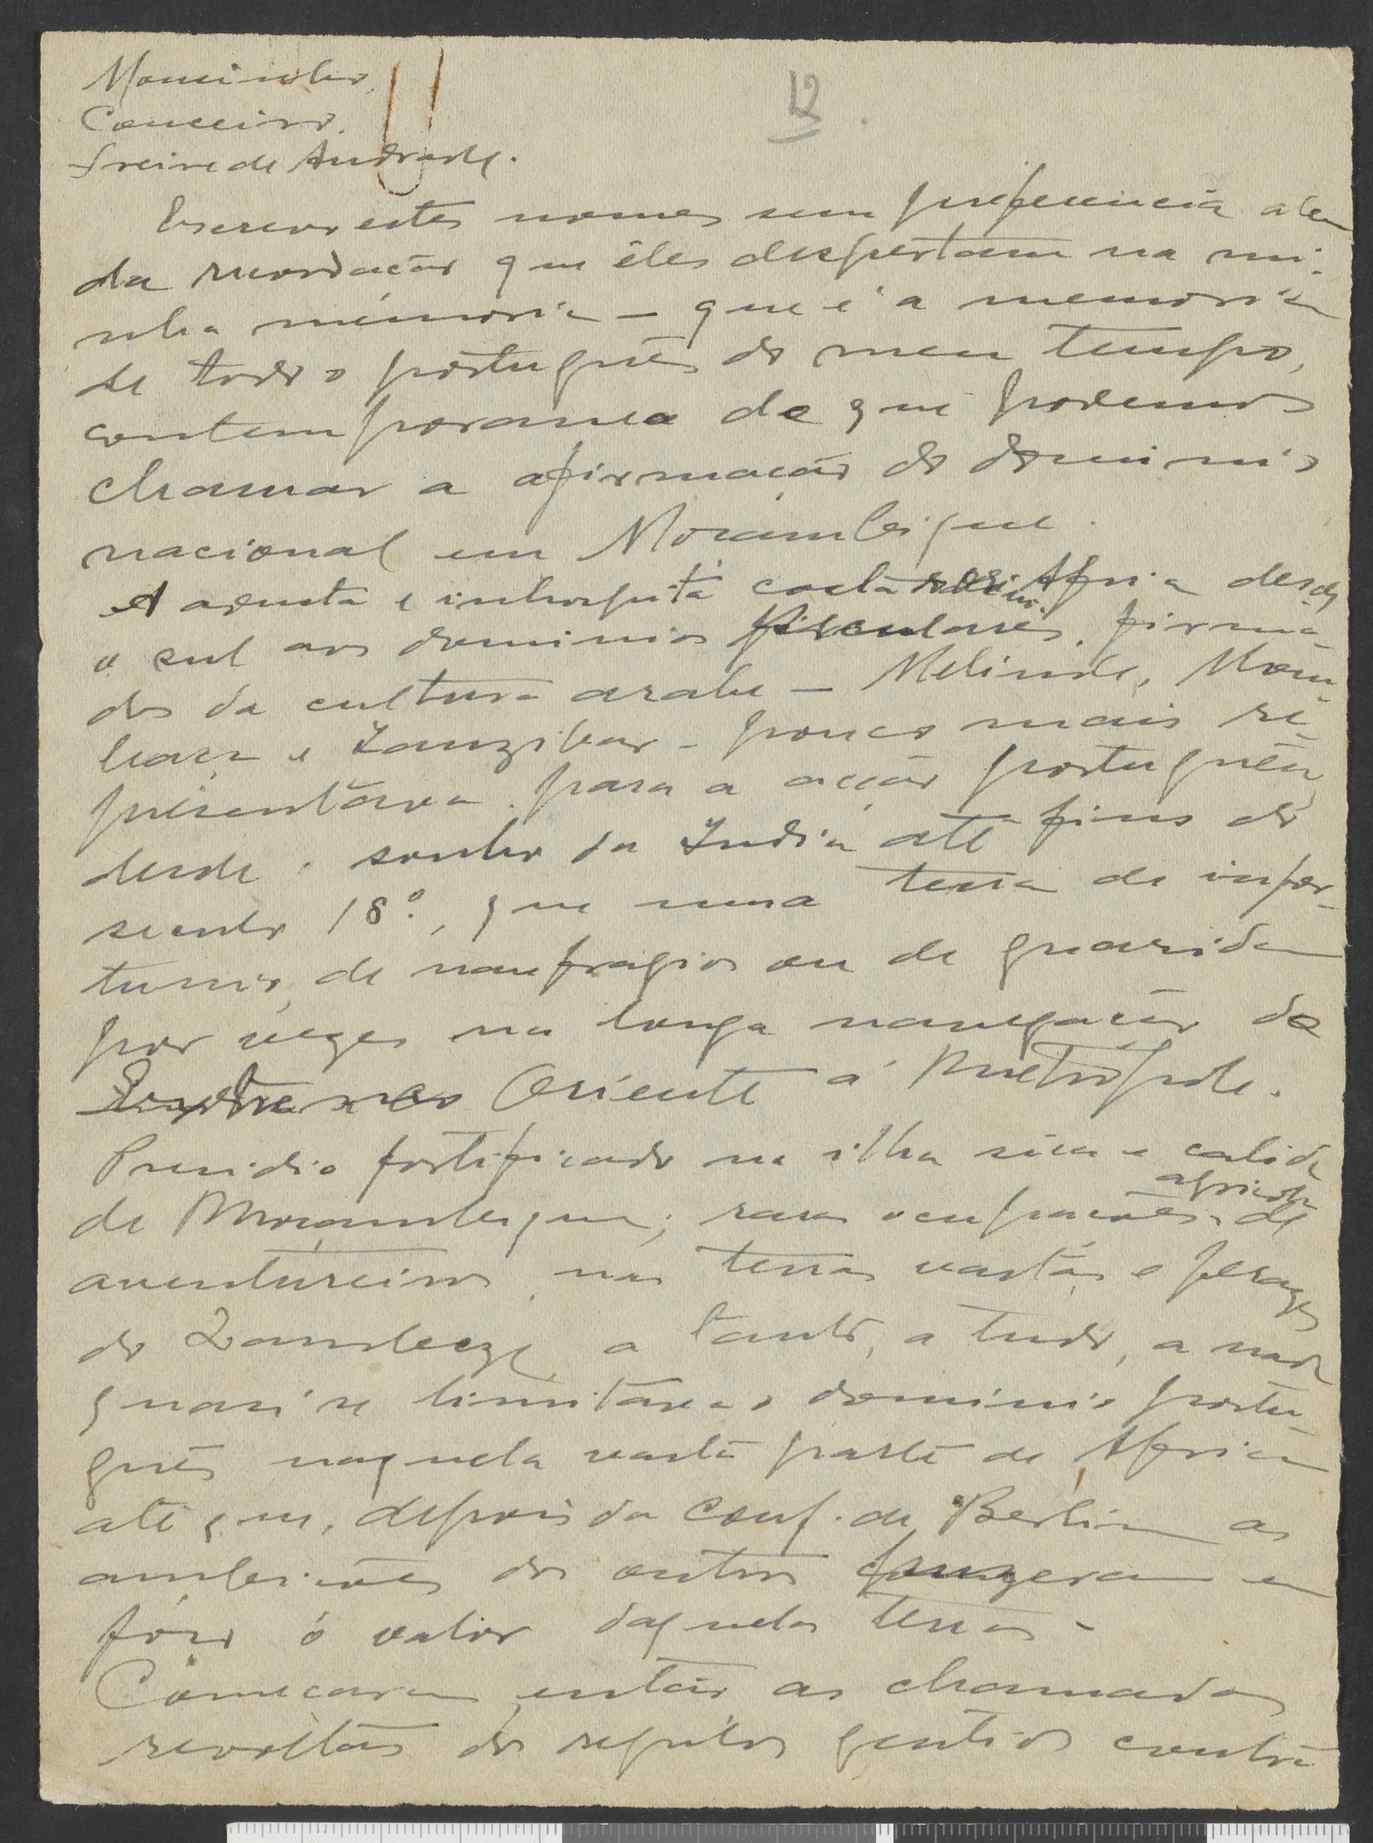 12
Mousinho,
Couceiro.
Freire de Andrade.
Escrevo estes nomes sem preferencia alem
da recordação que êles despertam na mi-
nha memoria - que é a memoria
de todo o português do meu tempo,
contemporaneo do que podemos
chamar a afirmação do dominio
nacional em Moçambique.
A adusta e inhospita costa Africa desde
o sul aos dominios seculares, firma-
dos da cultura arabe - Melinde, Mom-
baça e Zanzibar - pouco mais re-
presentava para a acção portuguêsa,
desde o sonho da India até fins do
seculo 18º, que uma terra de infor-
tunio, de naufragios ou de guarida
por vezes na longa navegação do
Oriente á Metrópole.
Presidio fortificado na ilha sêca e calida
de Moçambique; raras ocupações agricolas de
aventureiros nas terras vastas e ferazes
do Zambeze, a tanto, a tudo, a nada
quasi se limitava o dominio portu-
guês naquela vasta parte de Africa
até que, depois da Conf. de Berlim as
ambições dos outros puzeram em
fóco o valor daquelas terras.
Começaram então as chamadas
revoltas dos regulos gentios contra